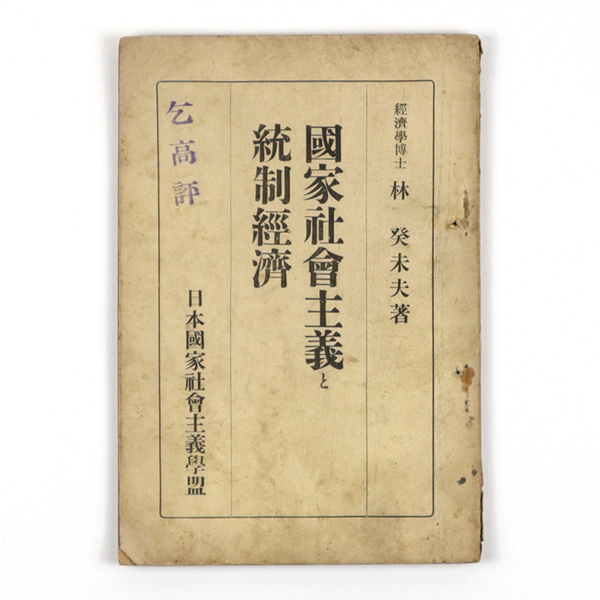 經濟學博士 林 癸未夫著
國家社會主義と
統制經濟
日本國家社會主義學盟
乞高評